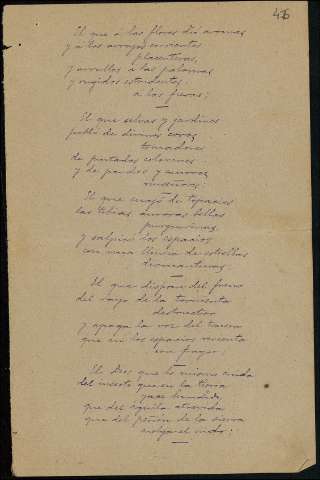 46
El que á las flores dió aromas
y á los arroyos corrientes
placenteras,
y arrullos á las palomas
y rugidos estridentes
á las fieras;
El que selvas y jardines
pobló de divinos coros
de pintados colorines
y de pardos y sonoros
ruiseñores;
El que cuajó de topacios
las tibias auroras bellas
purpurinas,
y salpicó los espacios
con una lluvia de estrellas
diamantinas;
El que dispone del freno
del rayo de la tormenta
destructor
y apaga la voz del trueno
que en los espacios revienta
con fragor;
El Dios que lo mismo cuida
del insecto que en la tierra
yace hundido,
que del águila atrevida
que del peñón de la sierra
cuelga el nido;